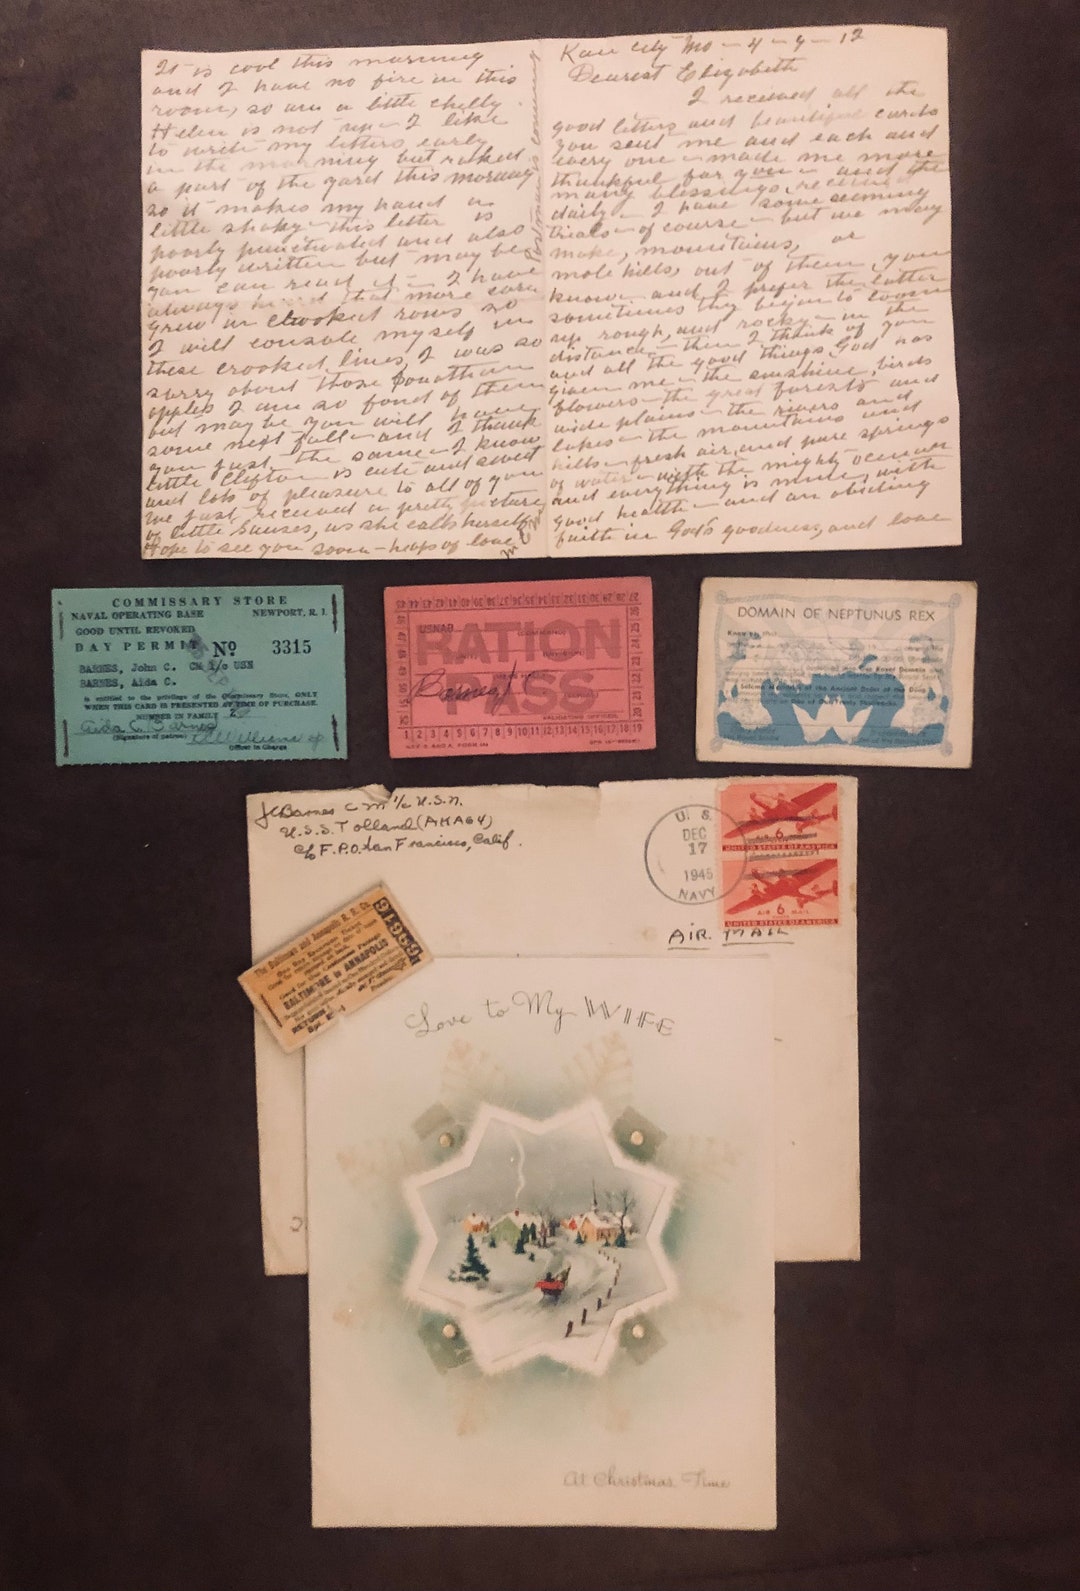 Kan City Mo - 4 - 4 - 12
Dearest Elizabeth
I received all the
good letters and beautiful cards
you sent me and each and
every one - made me more
thankful for you - and the
many blessings, received
daily - I have some seeming
trials - of course - but we may
make, mountains, or
mole hills, out of them, you
know - and I prefer the latter
sometimes they begin to loom
up rough, and rocky - in the
distance - then I think of you
and all the good things, God has
given me - the sunshine, birds
flowers - the great forests and
wide plains - the rivers and
lakes - the mountains and
hills - fresh air, and pure springs
of water - with the mighty ocean
and everything is mine, with
good health - and an abiding
faith in God's goodness, and love
It is cool this morning
and I have no fire in this
room, so am a little chilly.
Helen is not up - I like
to write my letters early
in the morning but raked
a part of the yard this morning
so it makes my hand a
little shaky - this letter is
poorly punctuated and also
poorly written but may be
you can read it - I have
always that more corn
grew in crooked rows so
I will console myself in
these crooked lines, I was so
sorry about those Jonathan
apples I am so fond of them
but may be you will have
some next fall - and I thank
you just the same - I know
little Clifton is cute and sweet
and lots of pleasure to all of you
We just received a pretty picture
of little, as she calls herself
Hope to see you soon - heaps of love
Postman is coming
COMMISSARY STORE
NAVAL OPERATING BASE NEWPORT, R. I.
GOOD UNTIL REVOKED
DAY PERMIT No 3315
BARNES, John C. CM 1/c USN
BARNES, Aida C.
is entitled to the privilege of the Commissary Store, ONLY
WHEN THIS CARD IS PRESENTED AT TIME OF PURCHASE.
NUMBER IN FAMILY 2
Aida C. Barnes
(Signature of patron)
Officer in Charge
27 28 29 30 31 32 33 34 35 36 37 38 39 40 41 42 43 44 45
USNAB
RATION
PASS
Barnes, J
VALIDATING OFFICER
46 47 48 49 50 51 52
26 25 24 23 22 21 20
1 2 3 4 5 6 7 8 9 10 11 12 13 14 15 16 17 18 19
DOMAIN OF NEPTUNUS REX
Know Ye
of the Royal Domain
Solemn Mysteries of the Ancient Order of the Deep
JC Barnes CM 1/c U.S.N.
U.S.S. Tolland (AKA64)
c/o F.P.O. San Francisco, Calif.
U. S.
DEC
17
1945
NAVY
AIR 6 MAIL
UNITED STATES OF AMERICA
AIR 6 MAIL
UNITED STATES OF AMERICA
AIR MAIL
The Baltimore and Annapolis R. R. Co.
BALTIMORE to ANNAPOLIS
RETURN
91969
Love to My WIFE
At Christmas Time